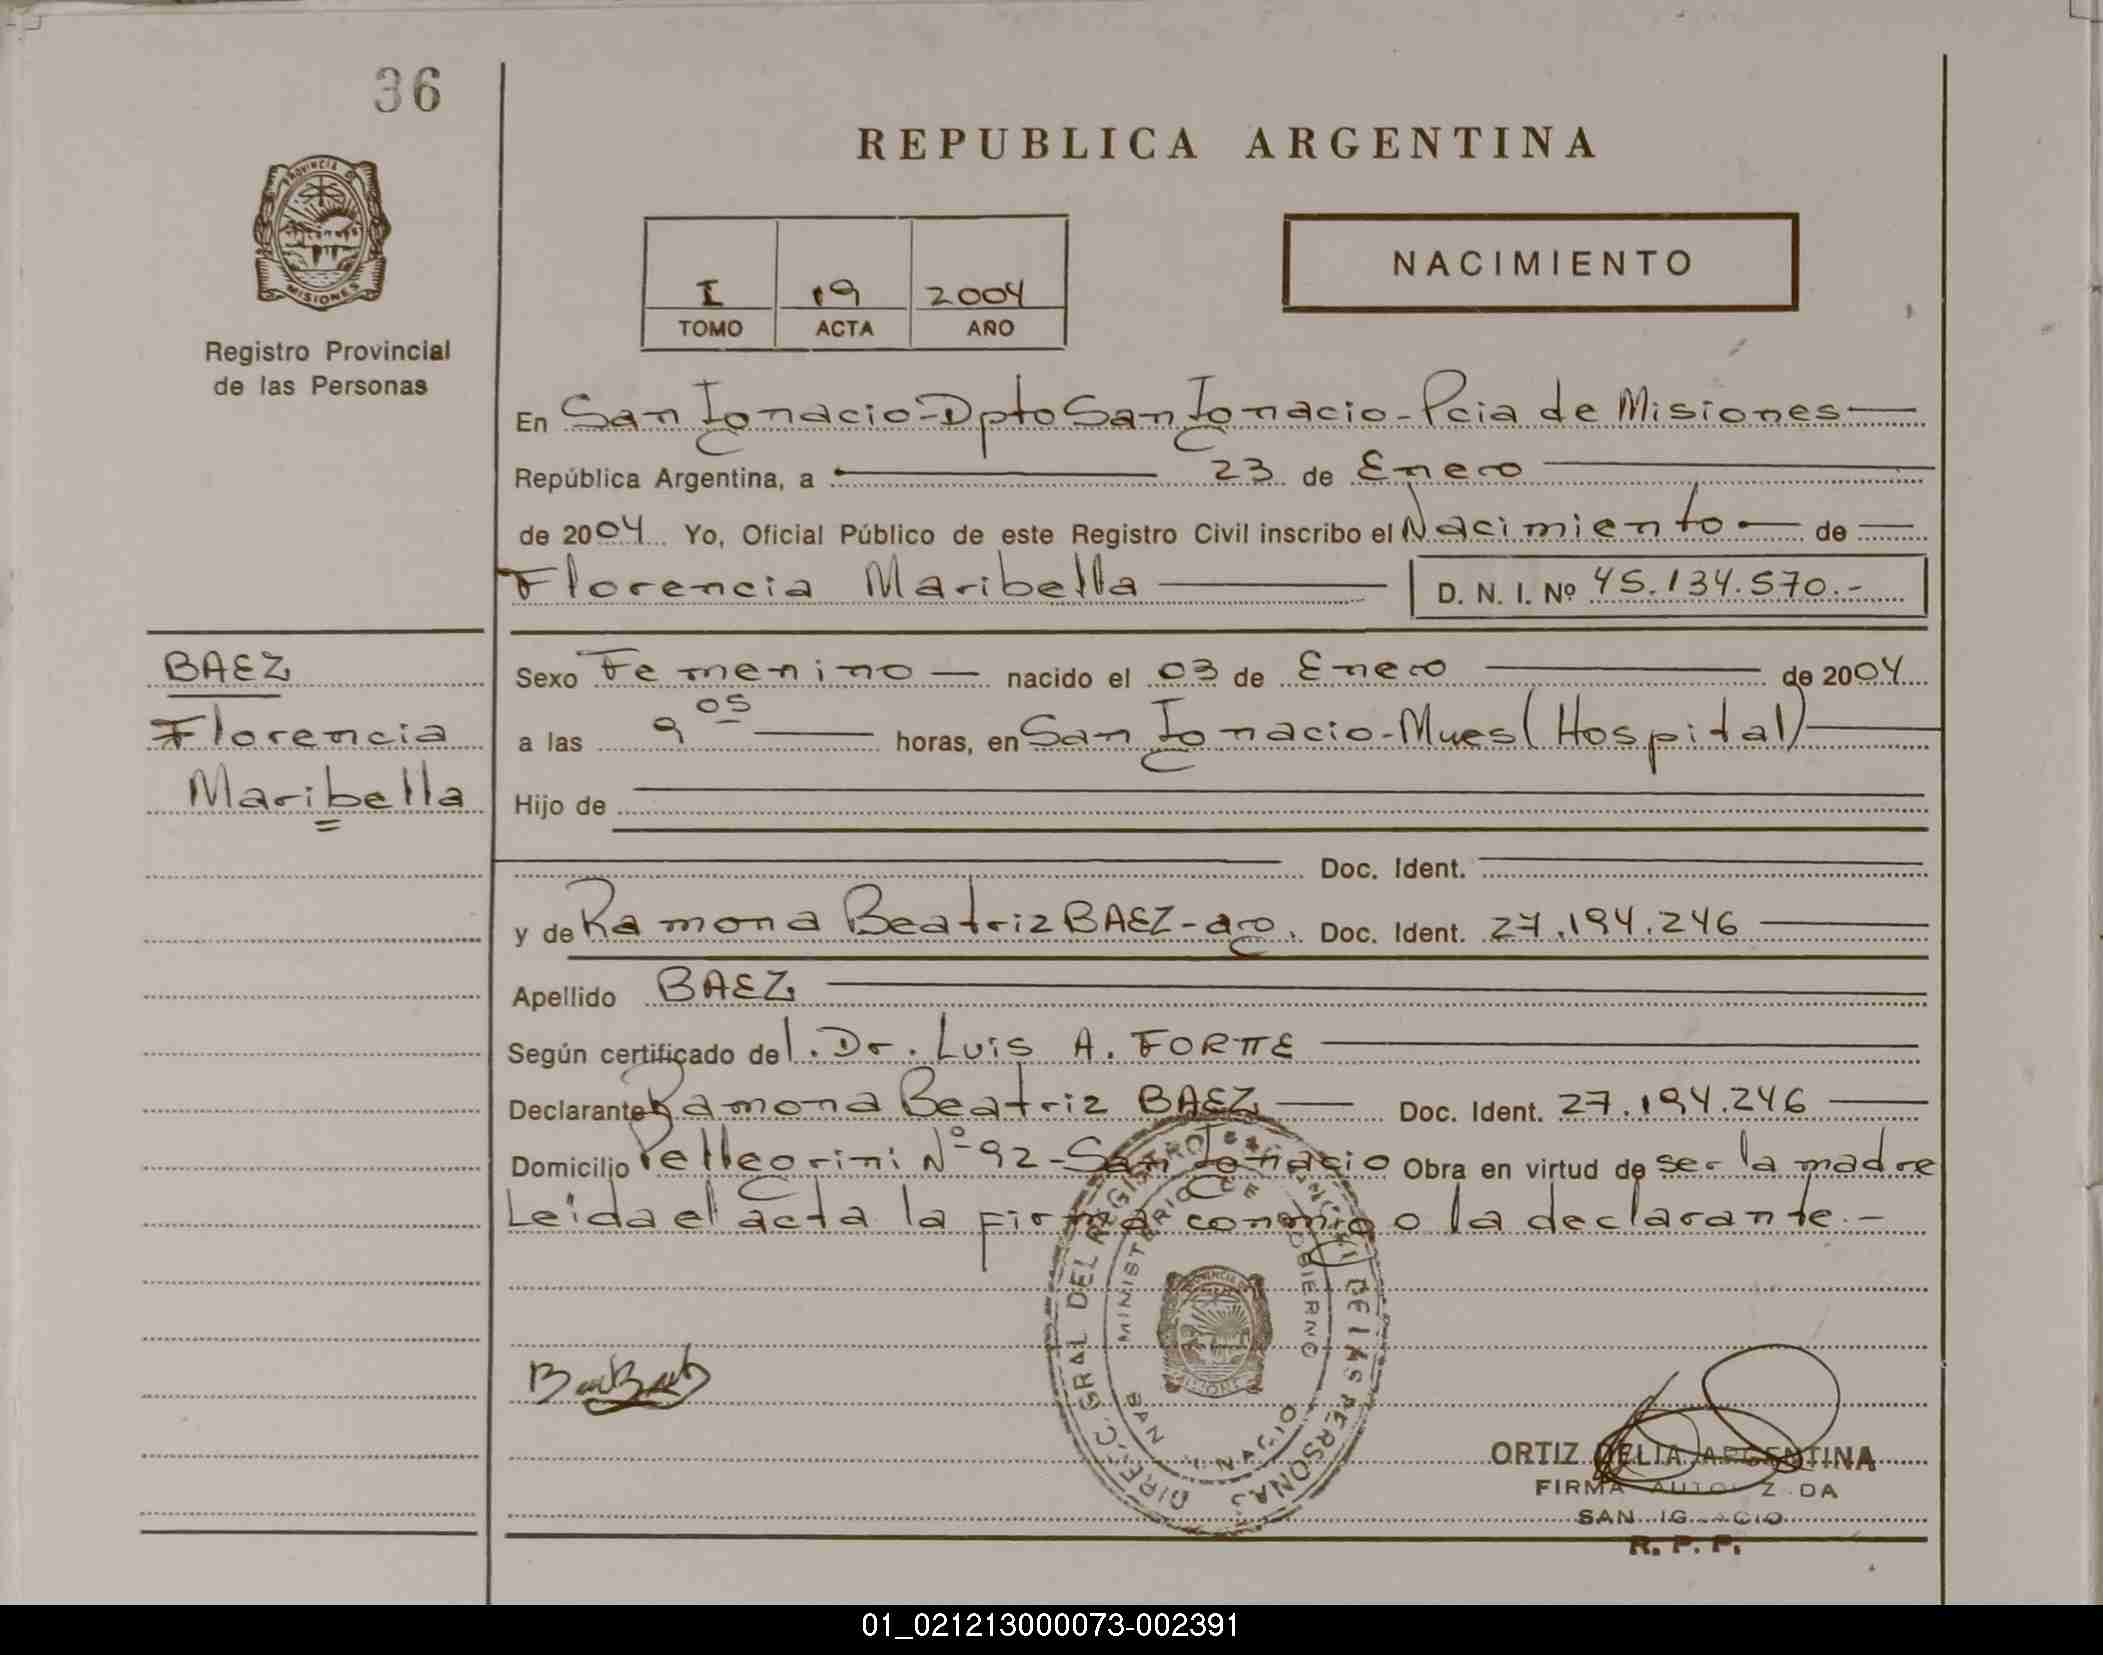 36
REPUBLICA ARGENTINA
PROVINCIA DE
MISIONES
Registro Provincial
de las Personas
I 19 2004
TOMO ACTA AÑO
NACIMIENTO
En San Ignacio - Dpto San Ignacio - Pcia de Misiones
República Argentina, a 23 de Enero
de 2004 Yo, Oficial Público de este Registro Civil inscribo el Nacimiento de
Florencia Maribella D. N. I. Nº 45.134.570.-
BAEZ
Florencia
Maribella
Sexo Femenino nacido el 03 de Enero de 2004
a las 9 05 horas, en San Ignacio - Mnes (Hospital)
Hijo de
Doc. Ident.
y de Ramona Beatriz BAEZ - arg. Doc. Ident. 27.194.246
Apellido BAEZ
Según certificado del. Dr. Luis A. FORTTE
Declarante Ramona Beatriz BAEZ Doc. Ident. 27.194.246
Domicilio Pellegrini Nº 92 - San Ignacio Obra en virtud de ser la madre
Leída el acta la firma conmigo la declarante.-
DIREC. GRAL DEL REGISTRO PROVINCIAL DE LAS PERSONAS
MINISTERIO DE GOBIERNO
SAN IGNACIO
ORTIZ DELIA ARGENTINA
FIRMA AUTORIZADA
SAN IGNACIO
R. P. P.
01_021213000073-002391